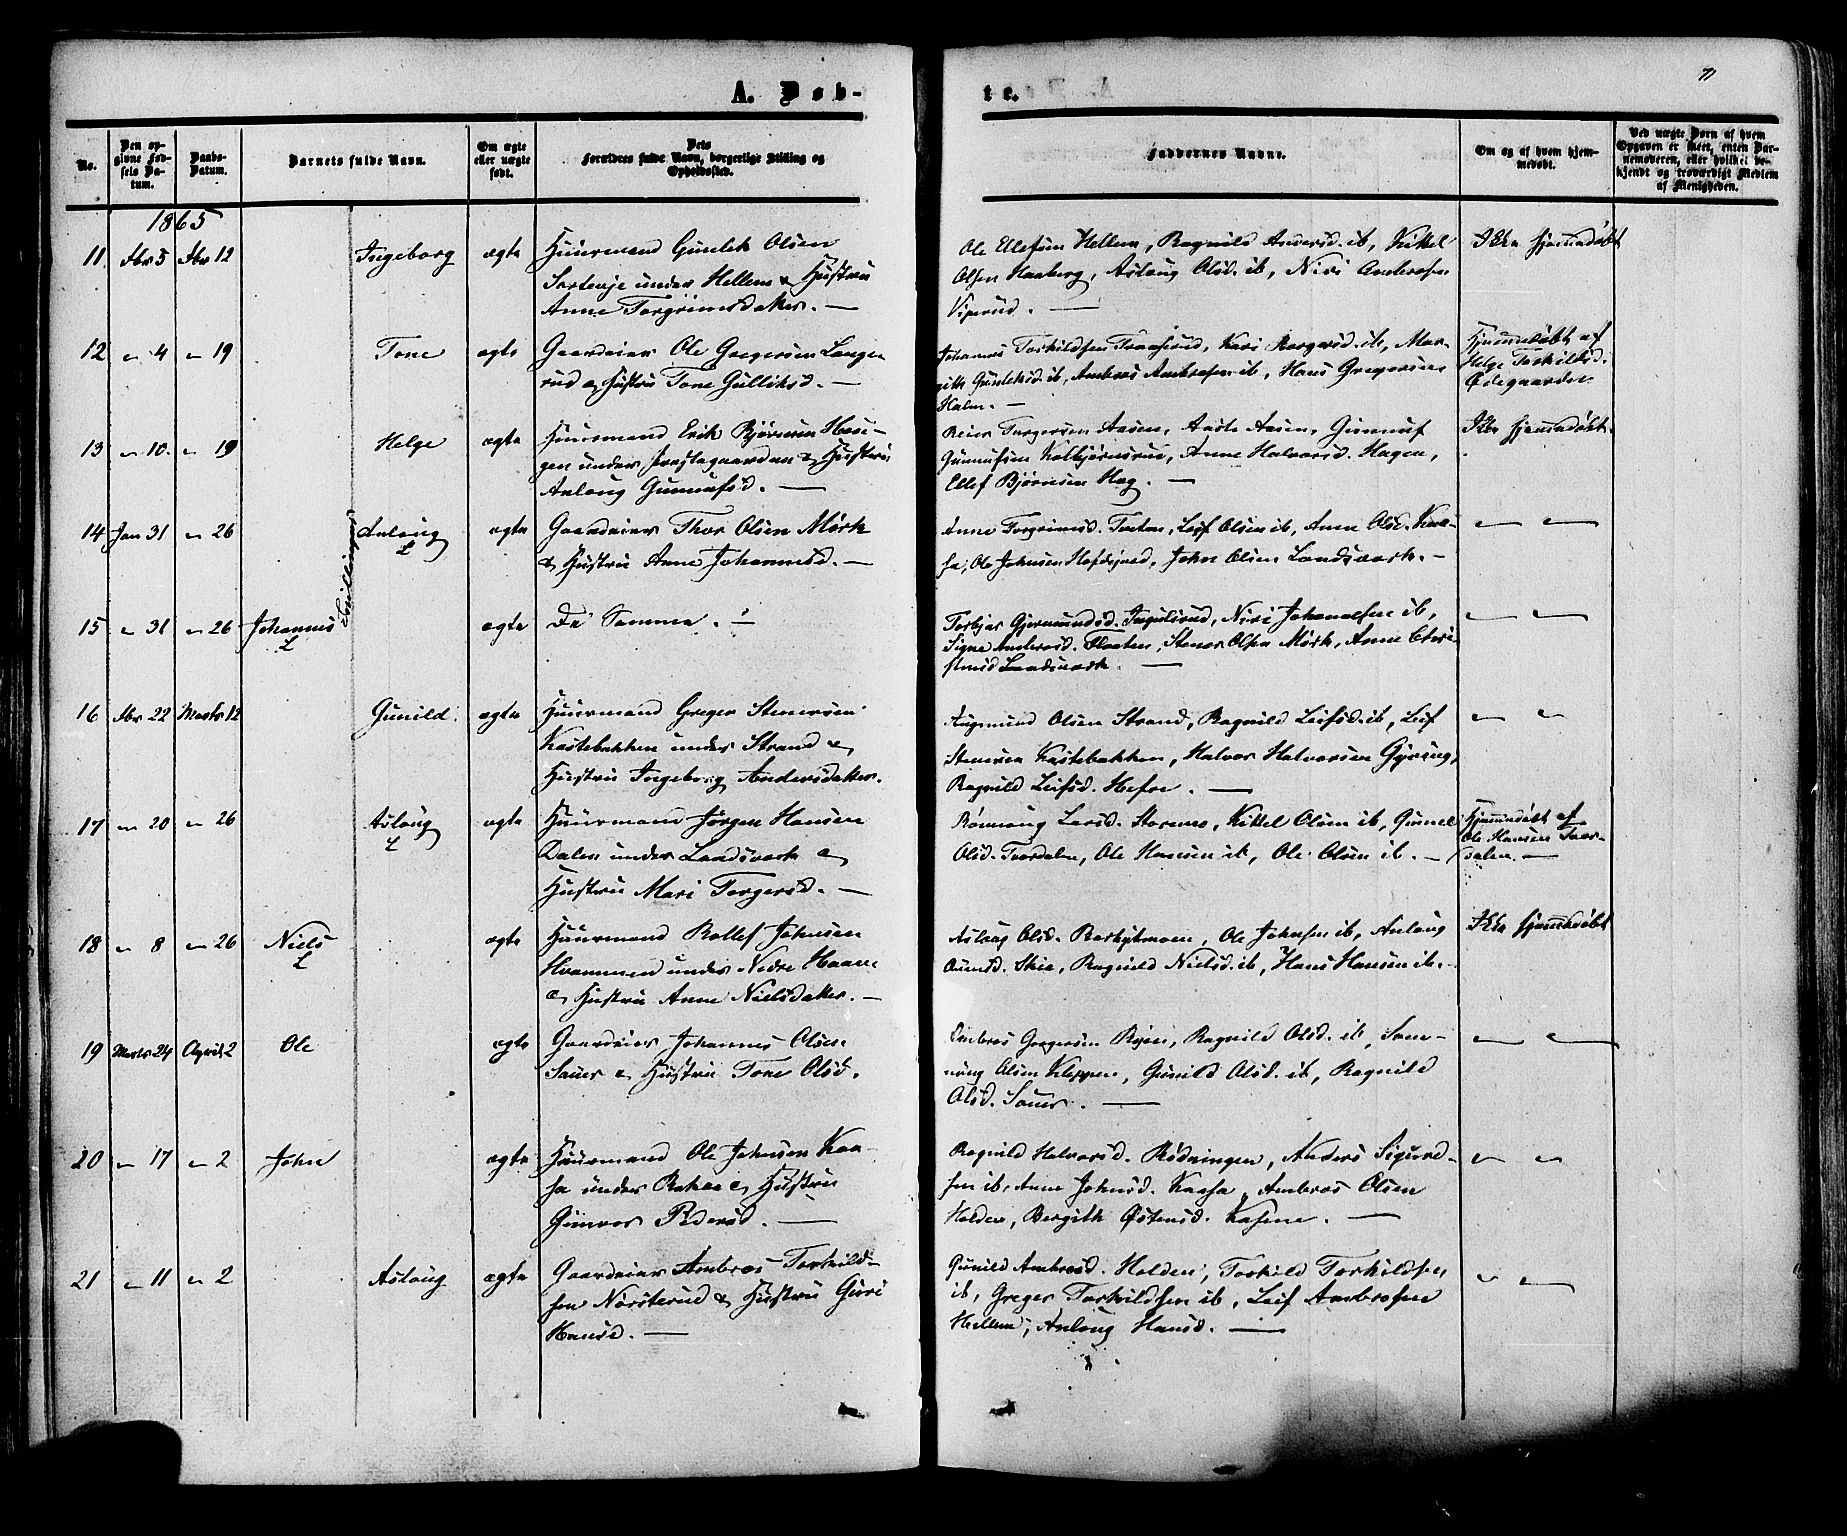 A. Døb-
te.
71
No.
Den op-
givne Fød-
sels Da-
tum.
Daabs-
Datum.
Barnets fulde Navn.
Om ægte
eller uægte
født.
Dets
Forældres fulde Navn, borgerlige Stilling og
Opholdssted.
Faddernes Navne.
Om og af hvem hjem-
medøbt.
Ved uægte Børn af hvem
Opgaven er skeet, enten Bar-
nemoderen, eller hvilket be-
kjendt og troværdigt Medlem
af Menigheden.
1865
11 Fbr 5 Fbr 12 Ingeborg ægte
Huusmand Gunlek Olsen
under Hellem & Hustru
Anne Torgrimsdatter. —
Ole Ellefsen Hellem, Ragnild Andersd. ib, Kittel
Olsen Haaberg, Aslaug Olsd. ib, Niri Ambrosen
Viperud. —
Ikke hjemmedøbt
12 " 4 " 19 Tone ægte
Gaardeier Ole Gregersen Langer
rud & Hustru Tone Gulliksd. —
Johannes Torkildsen Traaserud, Kari ib, Mar-
gith Gunleksd. ib, Ambros Ambrosen ib, Hans Gregersen
Holm. —
Hjemmedøbt af
Helge Torkildsd.
Ødegaarden
13 " 10. " 19 Helge ægte
Huusmand Erik Bjørnsen
gen under Præstegaarden & Hustru
Anlaug Gunnufsd. —
Reier Torgersen Aasen, Aaste Aasen, Gunnuf
Gunnufsen Kolbjørnsrud, Anne Halvorsd. Hagen,
Ellef Bjørnsen Hag. —
Ikke hjemmedøbt.
14 Jan 31 " 26 Anlaug ægte
L
Tvillinger
Gaardeier Thor Olsen Mørk
& Hustru Anne Johannesd. —
Anne Torgrimsd. Tveten, Leif Olsen ib, Anne Olsd. Kaa-
sa, Ole Johnsen, John Olsen Landsverk. —
" "
15 " 31 " 26 Johannes ægte
L
De Samme. —
Torbjør Gjermundsd. Ingulsrud, Niri Johannesen ib,
Signe Ambrosd. Flaaten, Stener Olsen Mørk, Anne Chri-
stensd Landsverk. —
" "
16 Fbr 22 Marts 12 Gunild. ægte
Huusmand Greger Stenersen
Kastebakken under Strand &
Hustru Ingeborg Andersdatter.
Augmund Olsen Strand, Ragnild Leifsd. ib, Leif
Stenersen Kastebakken, Halvor Halvorsen
Ragnild Leifsd. Hefre. —
" "
17 " 20 " 26 Aslaug ægte
L
Huusmand Jørgen Hansen
Dalen under Landsverk &
Hustru Mari Torgersd. —
Rønnaug Larsd. Storemo, Kittel Olsen ib, Gunnel
Olsd. Tverdalen, Ole Hansen ib, Ole Olsen ib. —
Hjemmedøbt af
Ole Hansen Tver-
dalen. —
18 " 8 " 26 Niels ægte
L
Huusmand Rollef Johnsen
Hvammen under Nedre Haave
& Hustru Anne Nielsdatter. —
Aslaug Olsd. Ole Johnsen ib, Anlaug
Skie, Ragnild Nielsd. ib, Hans Hansen ib. —
Ikke hjemmedøbt
19 Marts 24 April 2 Ole ægte
Gaardeier Johannes Olsen
Sauer & Hustru Tone Olsd.
Ambros Gregersen Ryen, Ragnild Olsd. ib, Sam-
mung Olsen Kleppen, Gunild Olsd. ib, Ragnild
Olsd. Sauer. —
" "
20 " 17 " 2 John ægte
Huusmand Ole Johnsen Kaa-
sa under Rake & Hustru
Gunvor Pedersd. —
Ragnild Halvorsd. Rødningen, Anders Sigurd-
sen ib, Anne Johnsd. Kaasa, Ambros Olsen
Holden, Bergith Østensd. Kasene. —
" "
21 " 11 " 2 Aslaug ægte
Gaardeier Ambros Torkild-
sen Nørsterud & Hustru Guri
Hansd. —
Gunild Ambrosd. Holden, Torkild Torkildsen
ib, Greger Torkildsen ib, Leif Ambrosen
Hellem, Anlaug Hansd. —
" "